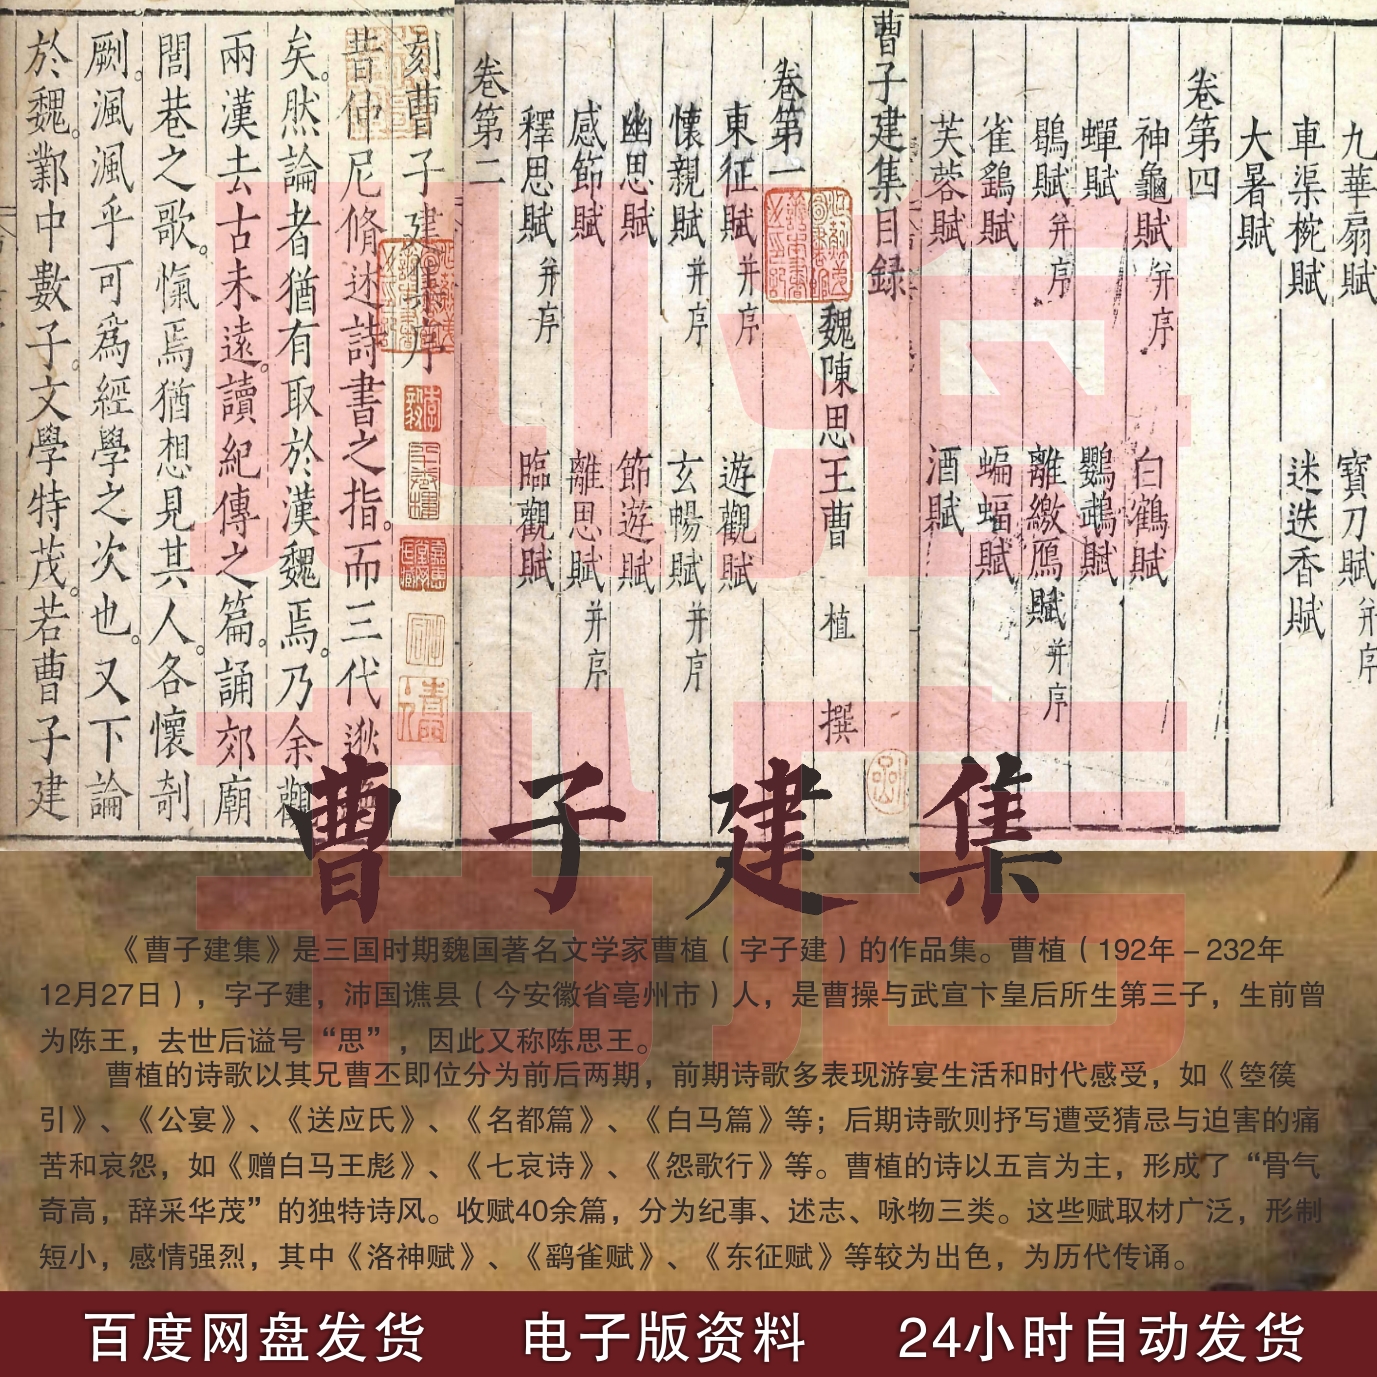 九華扇賦 寶刀賦并序
車渠椀賦 迷迭香賦
大暑賦
卷第四
神龜賦并序 白鶴賦
蟬賦 鸚鵡賦
鶡賦并序 離繳鴈賦并序
雀鷂賦 蝙蝠賦
芙蓉賦 酒賦
曹子建集目録
魏陳思王曹 植 撰
卷第一
東征賦并序 遊觀賦
懷親賦并序 玄暢賦并序
幽思賦 節遊賦
感節賦 離思賦并序
釋思賦并序 臨觀賦
卷第二
刻曹子建集序
昔仲尼脩述詩書之指。而三代逖
矣。然論者猶有取於漢魏焉。乃余觀
兩漢去古未遠。讀紀傳之篇。誦郊廟
閭巷之歌。愾焉猶想見其人。各懷剞
劂渢渢乎可爲經學之次也。又下論
於魏。鄴中數子。文學特茂。若曹子建
書海
书店
曹子建集
《曹子建集》是三国时期魏国著名文学家曹植（字子建）的作品集。曹植（192年－232年
12月27日），字子建，沛国谯县（今安徽省亳州市）人，是曹操与武宣卞皇后所生第三子，生前曾
为陈王，去世后谥号“思”，因此又称陈思王。
曹植的诗歌以其兄曹丕即位分为前后两期，前期诗歌多表现游宴生活和时代感受，如《箜篌
引》、《公宴》、《送应氏》、《名都篇》、《白马篇》等；后期诗歌则抒写遭受猜忌与迫害的痛
苦和哀怨，如《赠白马王彪》、《七哀诗》、《怨歌行》等。曹植的诗以五言为主，形成了“骨气
奇高，辞采华茂”的独特诗风。收赋40余篇，分为纪事、述志、咏物三类。这些赋取材广泛，形制
短小，感情强烈，其中《洛神赋》、《鹞雀赋》、《东征赋》等较为出色，为历代传诵。
百度网盘发货 电子版资料 24小时自动发货